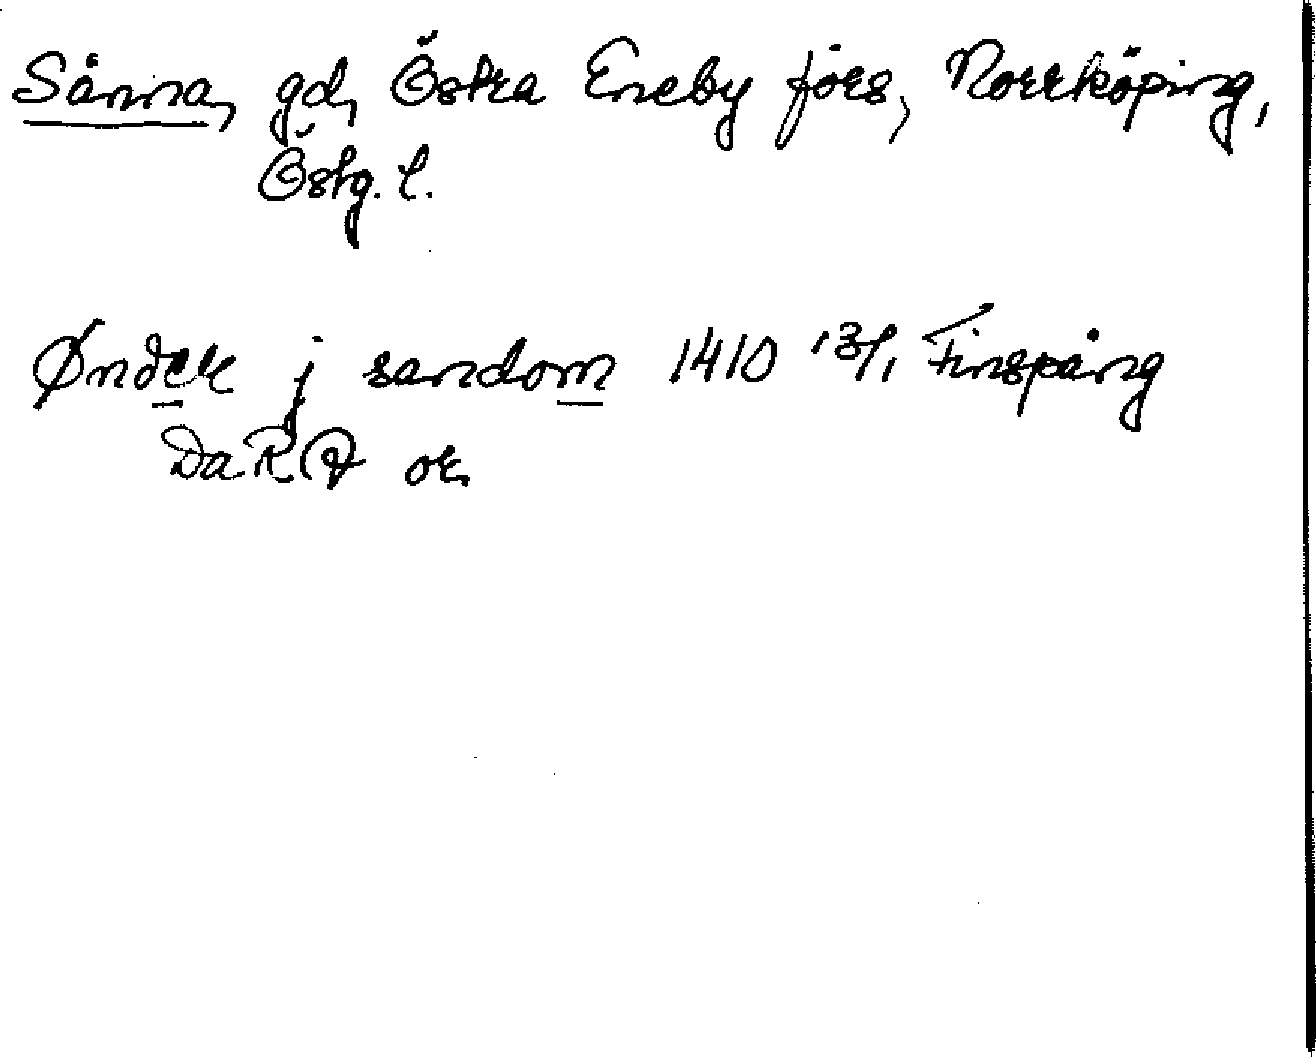 Sänna, gd, Östra Eneby förs, Norrköping,
Östg. l.
Ønder j sandom 1410 13/1 Finspång
DaRA or.